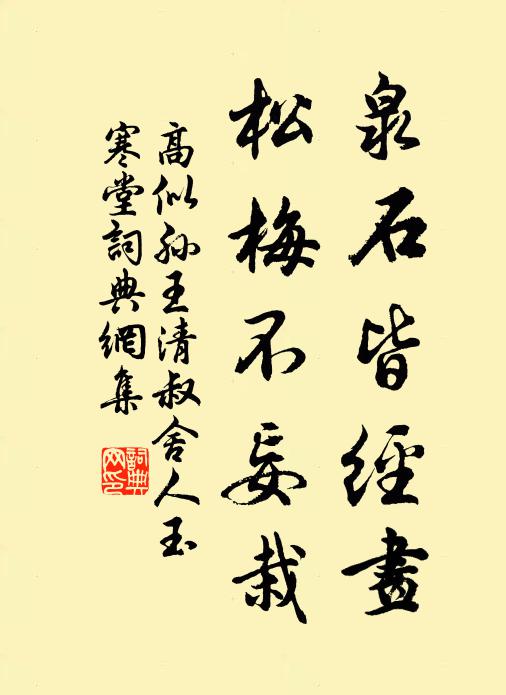 泉石皆經畫
松梅不妄栽
高似孫王清叔舍人玉
寒堂詞典網集
詞典網印